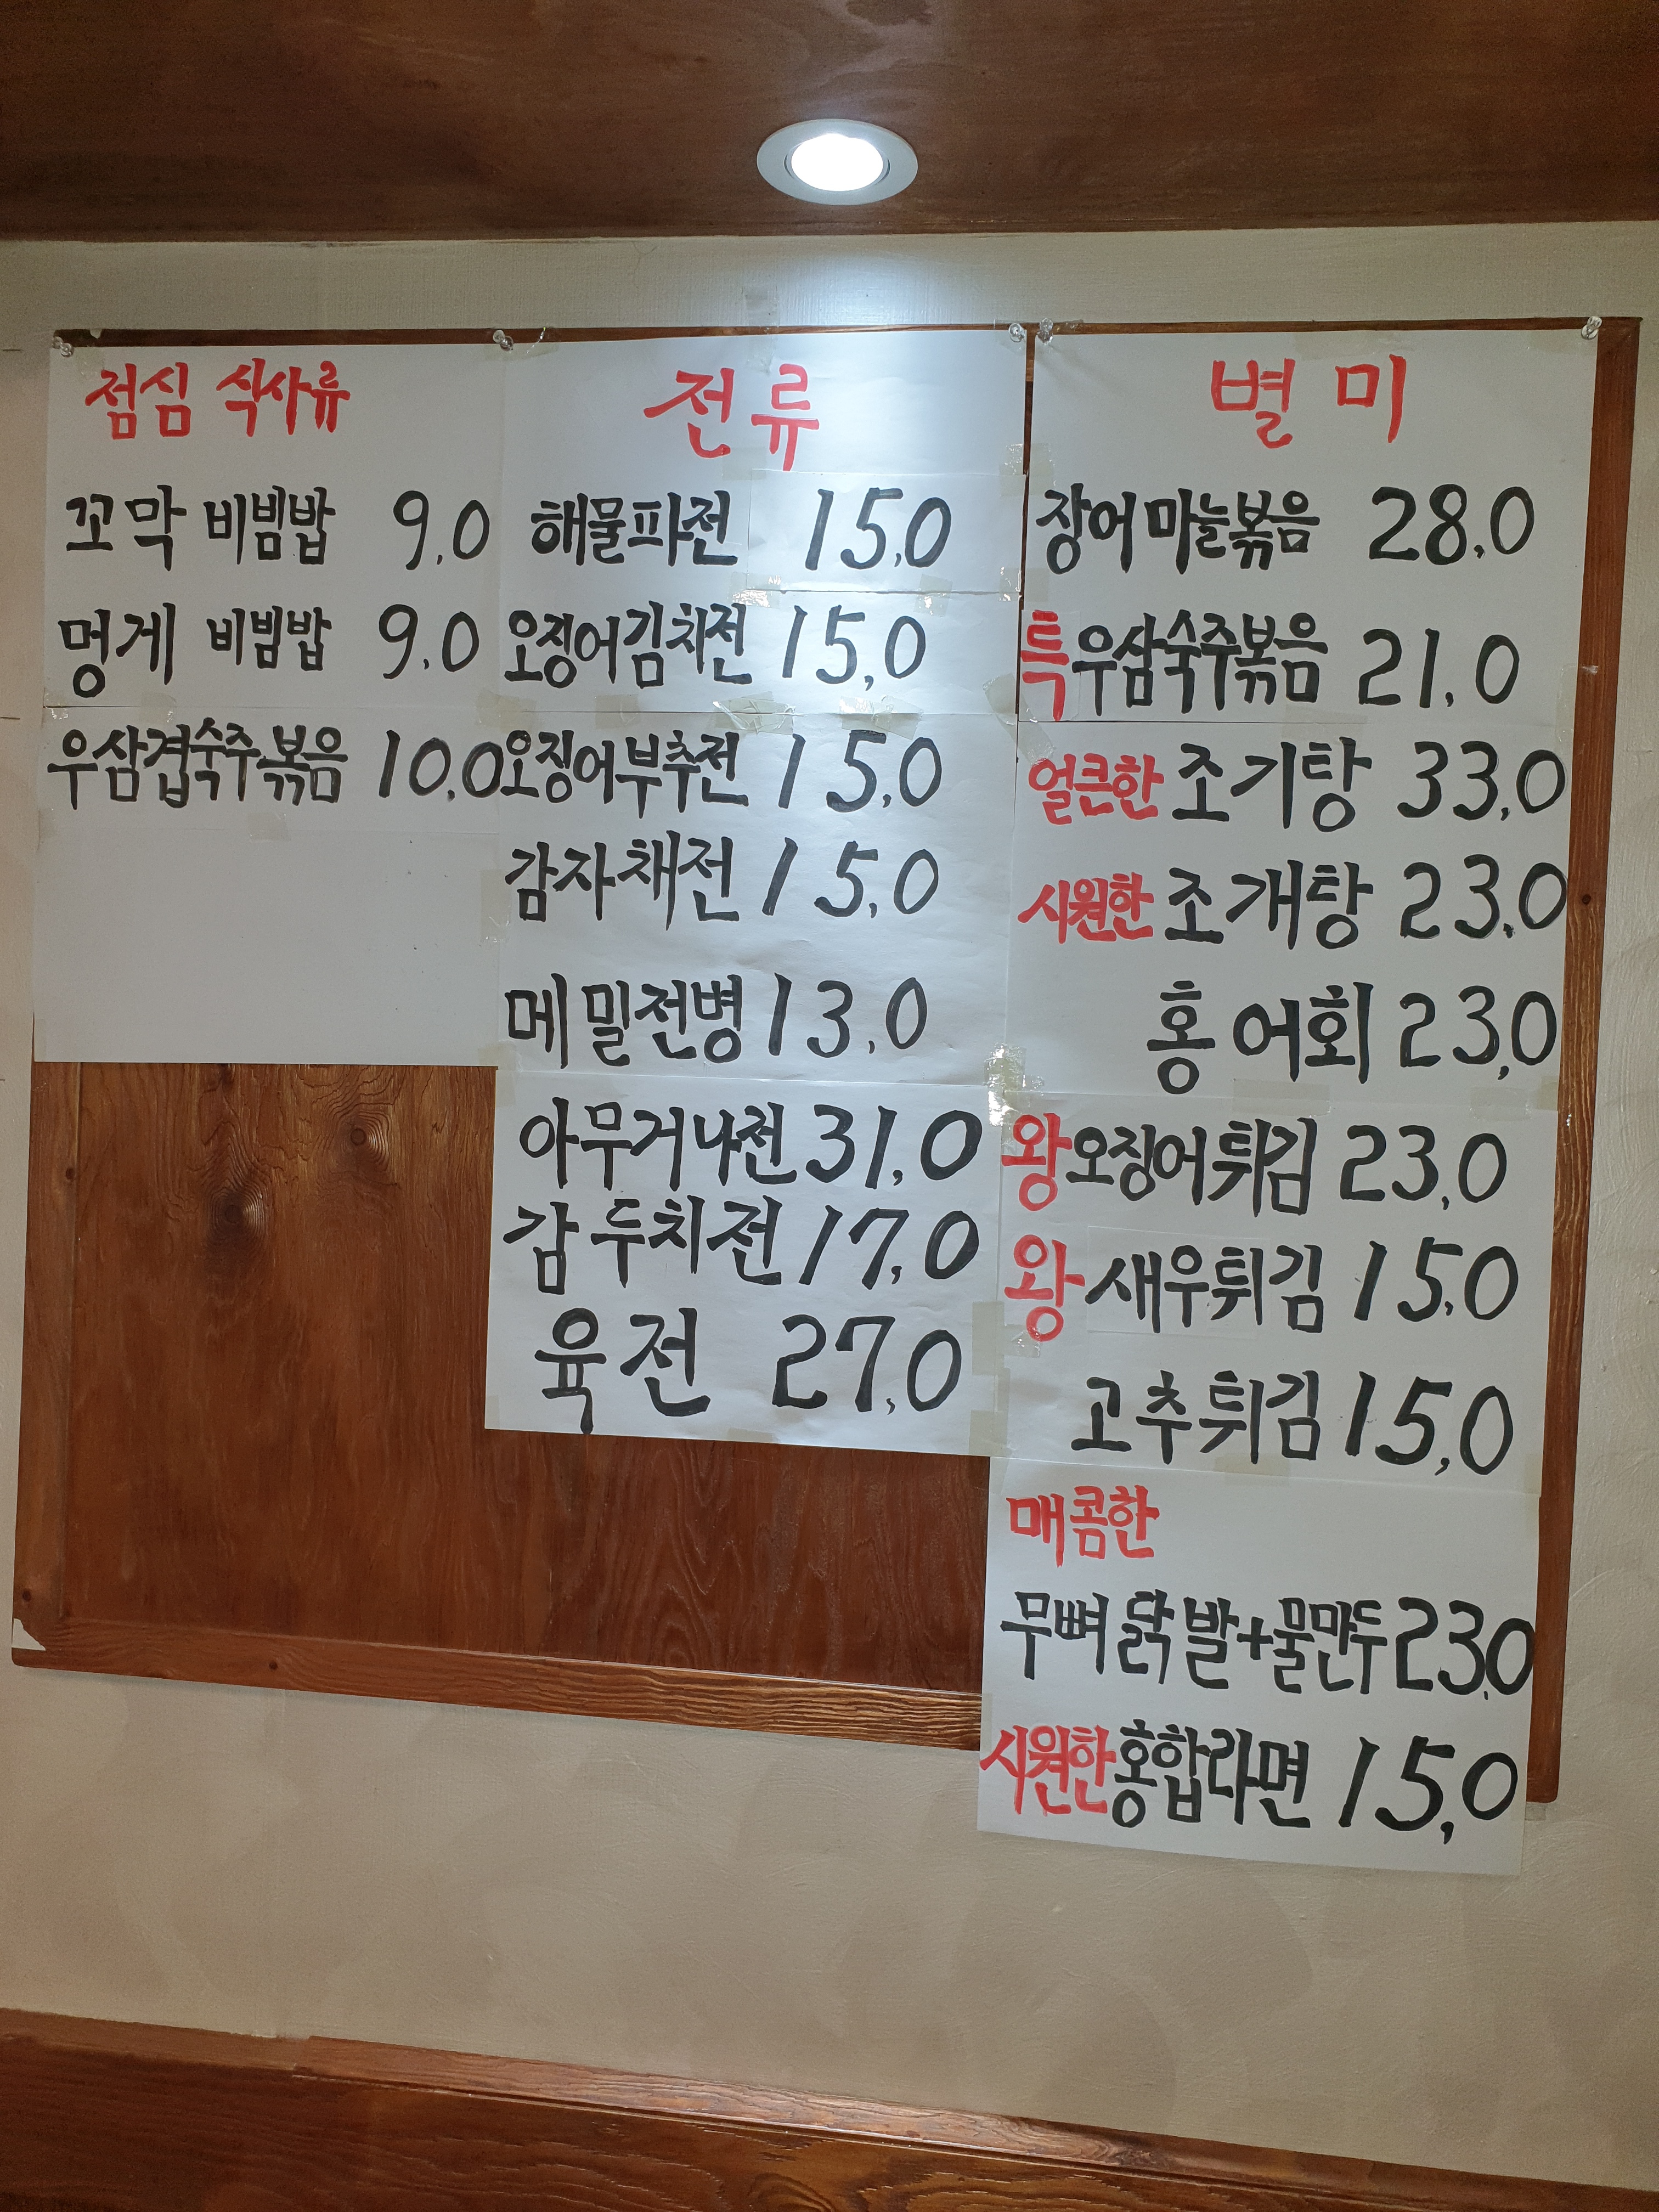 점심 식사류
꼬막 비빔밥 9.0
멍게 비빔밥 9.0
우삼겹숙주볶음 10.0
전류
해물파전 15.0
오징어김치전 15,0
오징어부추전 15.0
감자채전 15.0
메밀전병 13.0
아무거나전 31.0
감두치전 17.0
육전 27.0
별미
장어마늘볶음 28.0
특우삼숙주볶음 21.0
얼큰한 조기탕 33.0
시원한 조개탕 23.0
홍어회 23,0
왕오징어튀김 23,0
왕새우튀김 15.0
고추튀김 15,0
매콤한
무뼈닭발+물만두 23.0
시원한홍합라면 15,0